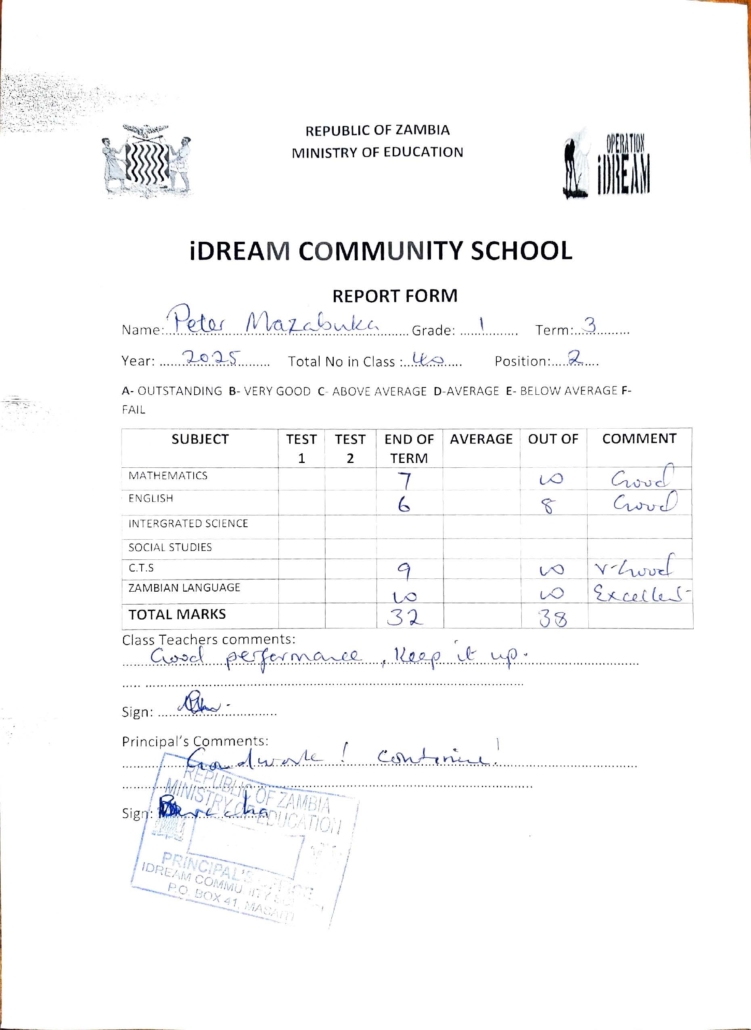 REPUBLIC OF ZAMBIA
MINISTRY OF EDUCATION
OPERATION
iDREAM
iDREAM COMMUNITY SCHOOL
REPORT FORM
Name: Peter Mazabuka Grade: 1 Term: 3
Year: 2025 Total No in Class: 40 Position: 2
A- OUTSTANDING B- VERY GOOD C- ABOVE AVERAGE D-AVERAGE E- BELOW AVERAGE F-
FAIL
SUBJECT TEST 1 TEST 2 END OF TERM AVERAGE OUT OF COMMENT
MATHEMATICS 7 10 Good
ENGLISH 6 8 Good
INTERGRATED SCIENCE
SOCIAL STUDIES
C.T.S 9 10 V-Good
ZAMBIAN LANGUAGE 10 10 Excellent
TOTAL MARKS 32 38
Class Teachers comments:
Good performance, Keep it up.
Sign:
Principal's Comments:
Good work! continue!
Sign:
REPUBLIC OF ZAMBIA
MINISTRY OF EDUCATION
PRINCIPAL'S
IDREAM COMMU
P.O. BOX 41, MASAITI